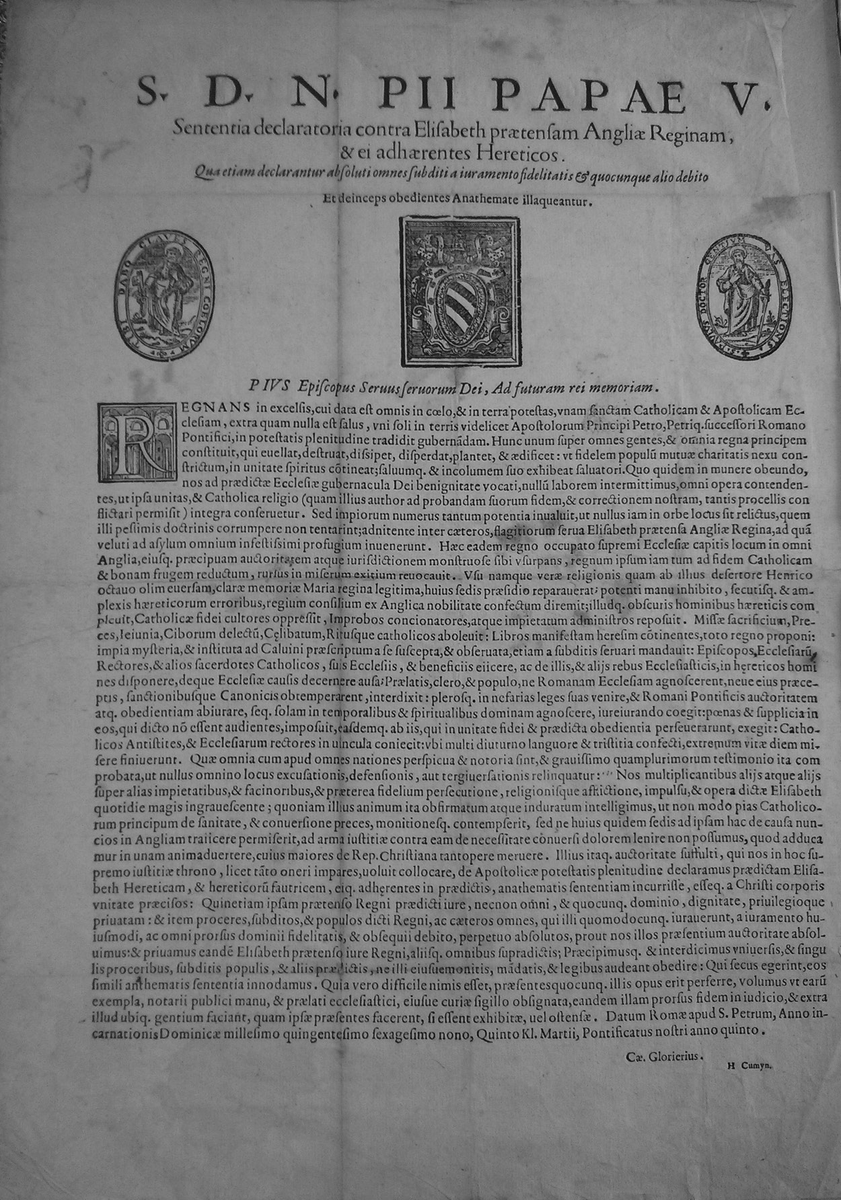 S. D. N. PII PAPAE V.
Sententia declaratoria contra Eliſabeth prætenſam Angliæ Reginam,
& ei adhærentes Hereticos.
Qua etiam declarantur abſoluti omnes ſubditi a iuramento fidelitatis & quocunque alio debito
Et deinceps obedientes Anathemate illaqueantur.
TIBI DABO CLAVES REGNI COELORUM
PAVLVS DOCTOR GENTIVM VAS ELECTIONIS
PIVS Epiſcopus Seruus ſeruorum Dei, Ad futuram rei memoriam.
REGNANS in excelſis, cui data eſt omnis in cœlo, & in terra poteſtas, vnam ſanctam Catholicam & Apoſtolicam Ec-
cleſiam, extra quam nulla eſt ſalus, vni ſoli in terris videlicet Apoſtolorum Principi Petro, Petriq. ſucceſſori Romano
Pontifici, in poteſtatis plenitudine tradidit gubernãdam. Hunc unum ſuper omnes gentes, & omnia regna principem
conſtituit, qui euellat, deſtruat, diſſipet, diſperdat, plantet, & ædificet: vt fidelem populũ mutuæ charitatis nexu con-
ſtrictum, in unitate ſpiritus cõtineat; ſaluumq. & incolumem ſuo exhibeat ſaluatori. Quo quidem in munere obeundo,
nos ad prædictæ Eccleſiæ gubernacula Dei benignitate vocati, nullũ laborem intermittimus, omni opera contenden-
tes, ut ipſa unitas, & Catholica religio (quam illius author ad probandam ſuorum fidem, & correctionem noſtram, tantis procellis con
flictari permiſit) integra conſeruetur. Sed impiorum numerus tantum potentia inualuit, ut nullus iam in orbe locus ſit relictus, quem
illi peſſimis doctrinis corrumpere non tentarint; adnitente inter cæteros, flagitiorum ſerua Eliſabeth prætenſa Angliæ Regina, ad quã
veluti ad aſylum omnium infeſtiſſimi profugium inuenerunt. Hæc eadem regno occupato ſupremi Eccleſiæ capitis locum in omni
Anglia, eiuſq. præcipuam auctoritatem atque iuriſdictionem monſtruoſe ſibi vſurpans, regnum ipſum iam tum ad fidem Catholicam
& bonam frugem reductum, rurſus in miſerum exitium reuocauit. Vſu namque veræ religionis quam ab illius deſertore Henrico
octauo olim euerſam, claræ memoriæ Maria regina legitima, huius ſedis præſidio reparauerat; potenti manu inhibito, ſecutiſq. & am-
plexis hæreticorum erroribus, regium conſilium ex Anglica nobilitate confectum diremit; illudq. obſcuris hominibus hæreticis com
pleuit, Catholicæ fidei cultores oppreſſit, Improbos concionatores, atque impietatum adminiſtros repoſuit. Miſſæ ſacrificium, Pre-
ces, Ieiunia, Ciborum delectũ, Cęlibatum, Rituſque catholicos aboleuit: Libros manifeſtam hereſim cõtinentes, toto regno proponi:
impia myſteria, & inſtituta ad Caluini præſcriptum a ſe ſuſcepta, & obſeruata, etiam a ſubditis ſeruari mandauit: Epiſcopos, Eccleſiarũ
Rectores, & alios ſacerdotes Catholicos, ſuis Eccleſiis, & beneficiis eiicere, ac de illis, & alijs rebus Eccleſiaſticis, in hęreticos homi
nes diſponere, deque Eccleſiæ cauſis decernere auſa; Prælatis, clero, & populo, ne Romanam Eccleſiam agnoſcerent, neue eius præce-
ptis, ſanctionibuſque Canonicis obtemperarent, interdixit: pleroſq. in nefarias leges ſuas venire, & Romani Pontificis auctoritatem
atq. obedientiam abiurare, ſeq. ſolam in temporalibus & ſpiritualibus dominam agnoſcere, iureiurando coegit: pœnas & ſupplicia in
eos, qui dicto nõ eſſent audientes, impoſuit, eaſdemq. ab iis, qui in unitate fidei & prædicta obedientia perſeuerarunt, exegit: Catho-
licos Antiſtites, & Eccleſiarum rectores in uincula coniecit: vbi multi diuturno languore & triſtitia confecti, extremum vitæ diem mi-
ſere finiuerunt. Quæ omnia cum apud omnes nationes perſpicua & notoria ſint, & grauiſſimo quamplurimorum teſtimonio ita com
probata, ut nullus omnino locus excuſationis, defenſionis, aut tergiuerſationis relinquatur: Nos multiplicantibus alijs atque alijs
ſuper alias impietatibus, & facinoribus, & præterea fidelium perſecutione, religioniſque afflictione, impulſu, & opera dictæ Eliſabeth
quotidie magis ingraueſcente; quoniam illius animum ita obfirmatum atque induratum intelligimus, ut non modo pias Catholico-
rum principum de ſanitate, & conuerſione preces, monitioneſq. contempſerit, ſed ne huius quidem ſedis ad ipſam hac de cauſa nun-
cios in Angliam traiicere permiſerit, ad arma iuſtitiæ contra eam de neceſſitate cõuerſi dolorem lenire non poſſumus, quod adduca
mur in unam animaduertere, cuius maiores de Rep. Chriſtiana tantopere meruere. Illius itaq. auctoritate fulti, qui nos in hoc ſu-
premo iuſtitiæ throno, licet tãto oneri impares, uoluit collocare, de Apoſtolicæ poteſtatis plenitudine declaramus prædictam Eliſa-
beth Hereticam, & hereticorũ fautricem, eiq. adherentes in prædictis, anathematis ſententiam incurriſſe, eſſeq. a Chriſti corporis
vnitate præciſos: Quinetiam ipſam prætenſo Regni prædicti iure, necnon omni, & quocunq. dominio, dignitate, priuilegioque
priuatam: & item proceres, ſubditos, & populos dicti Regni, ac cæteros omnes, qui illi quomodocunq. iurauerunt, a iuramento hu-
iuſmodi, ac omni prorſus dominii fidelitatis, & obſequii debito, perpetuo abſolutos, prout nos illos præſentium auctoritate abſol-
uimus: & priuamus eandẽ Eliſabeth prætenſo iure Regni, aliiſq. omnibus ſupradictis; Præcipimuſq. & interdicimus vniuerſis, & ſingu
lis proceribus, ſubditis populis, & aliis prædictis, ne illi eiuſue monitis, mãdatis, & legibus audeant obedire: Qui ſecus egerint, eos
ſimili anathematis ſententia innodamus. Quia vero difficile nimis eſſet, præſentes quocunq. illis opus erit perferre, volumus vt earũ
exempla, notarii publici manu, & prælati eccleſiaſtici, eiuſue curiæ ſigillo obſignata, eandem illam prorſus fidem in iudicio, & extra
illud ubiq. gentium faciant, quam ipſæ præſentes facerent, ſi eſſent exhibitæ, uel oſtenſæ. Datum Romæ apud S. Petrum, Anno in-
carnationis Dominicæ milleſimo quingenteſimo ſexageſimo nono, Quinto Kl. Martii, Pontificatus noſtri anno quinto.
Cæ. Glorierius.
H Cumyn.